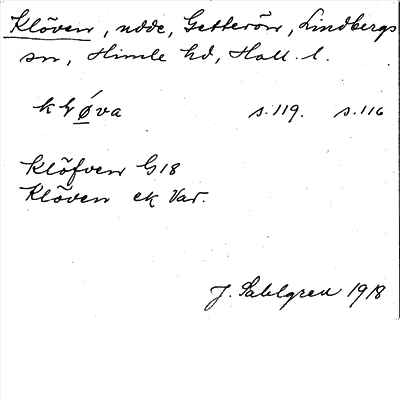 Klöven, udde, Getterön, Lindbergs
sn, Himle hd, Hall. l.
s. 119. s. 116
Klöfven G18
Klöven ek Var.
J. Sahlgren 1918